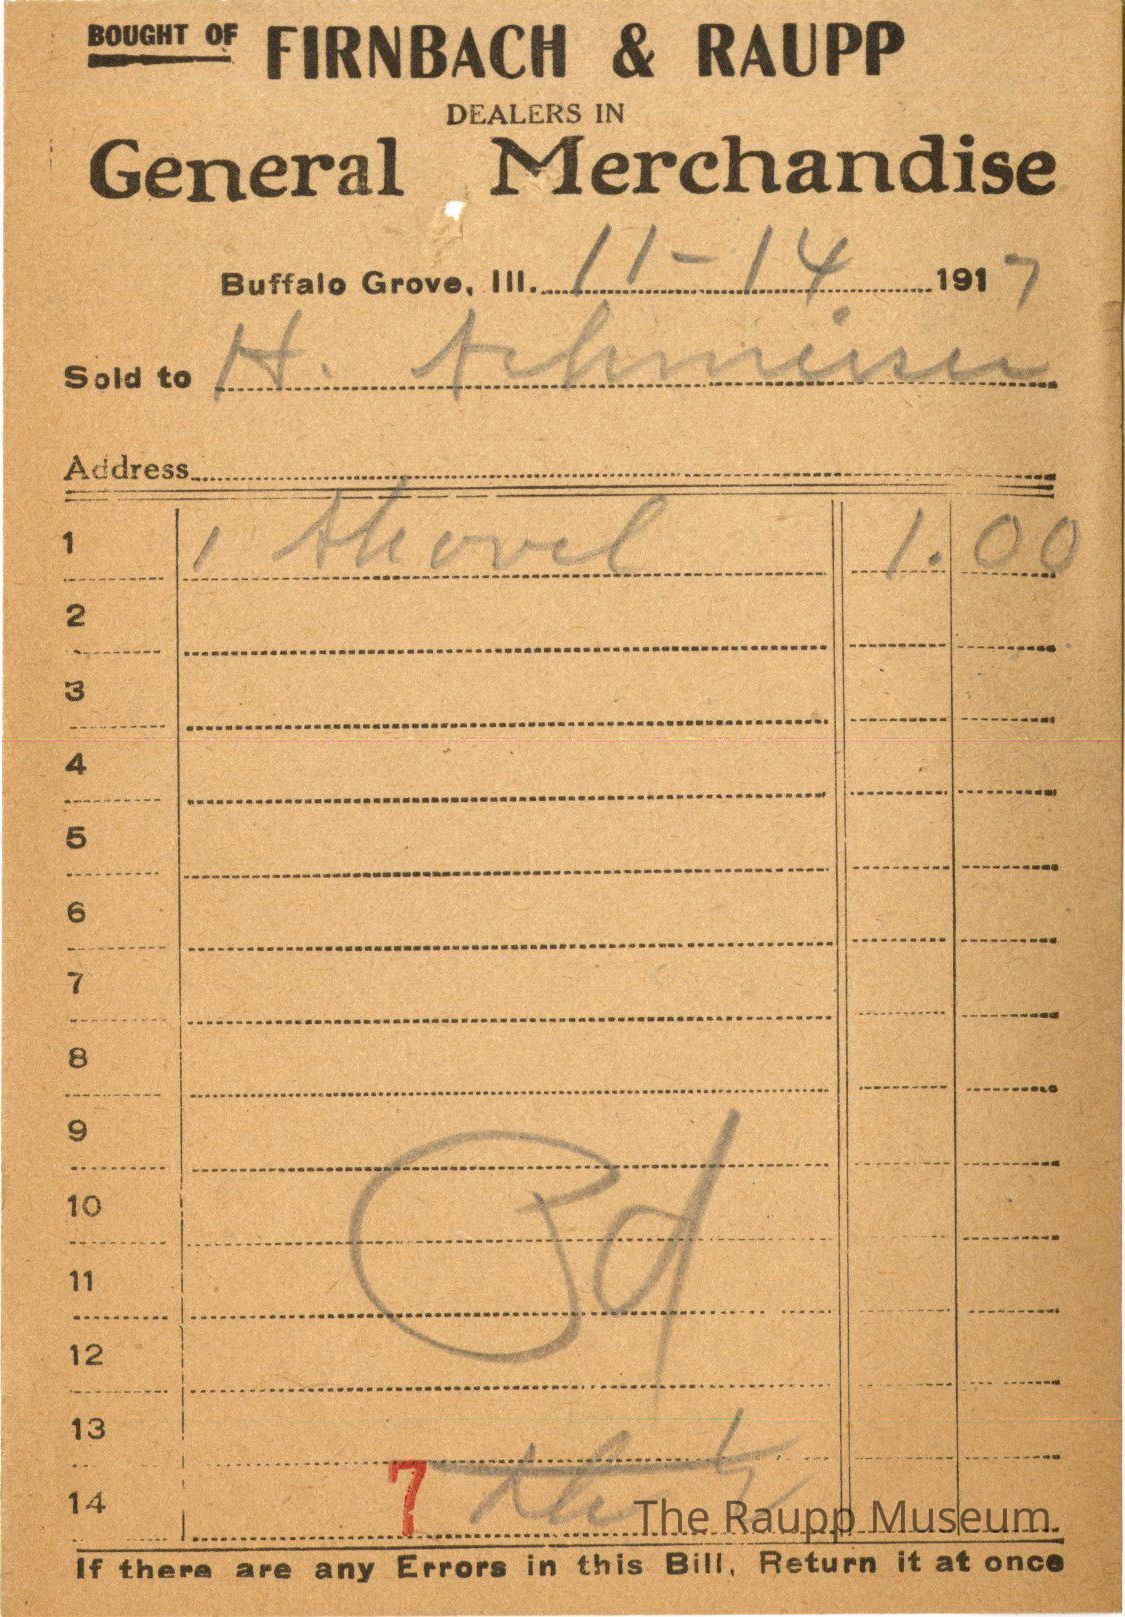 BOUGHT OF FIRNBACH & RAUPP
DEALERS IN
General Merchandise
Buffalo Grove, Ill. 11-14 1917
Sold to H.
Address
1 1 Shovel 1.00
2
3
4
5
6
7
8
9
10
11
12
13
14 7
Pd
The Raupp Museum
If there are any Errors in this Bill, Return it at once